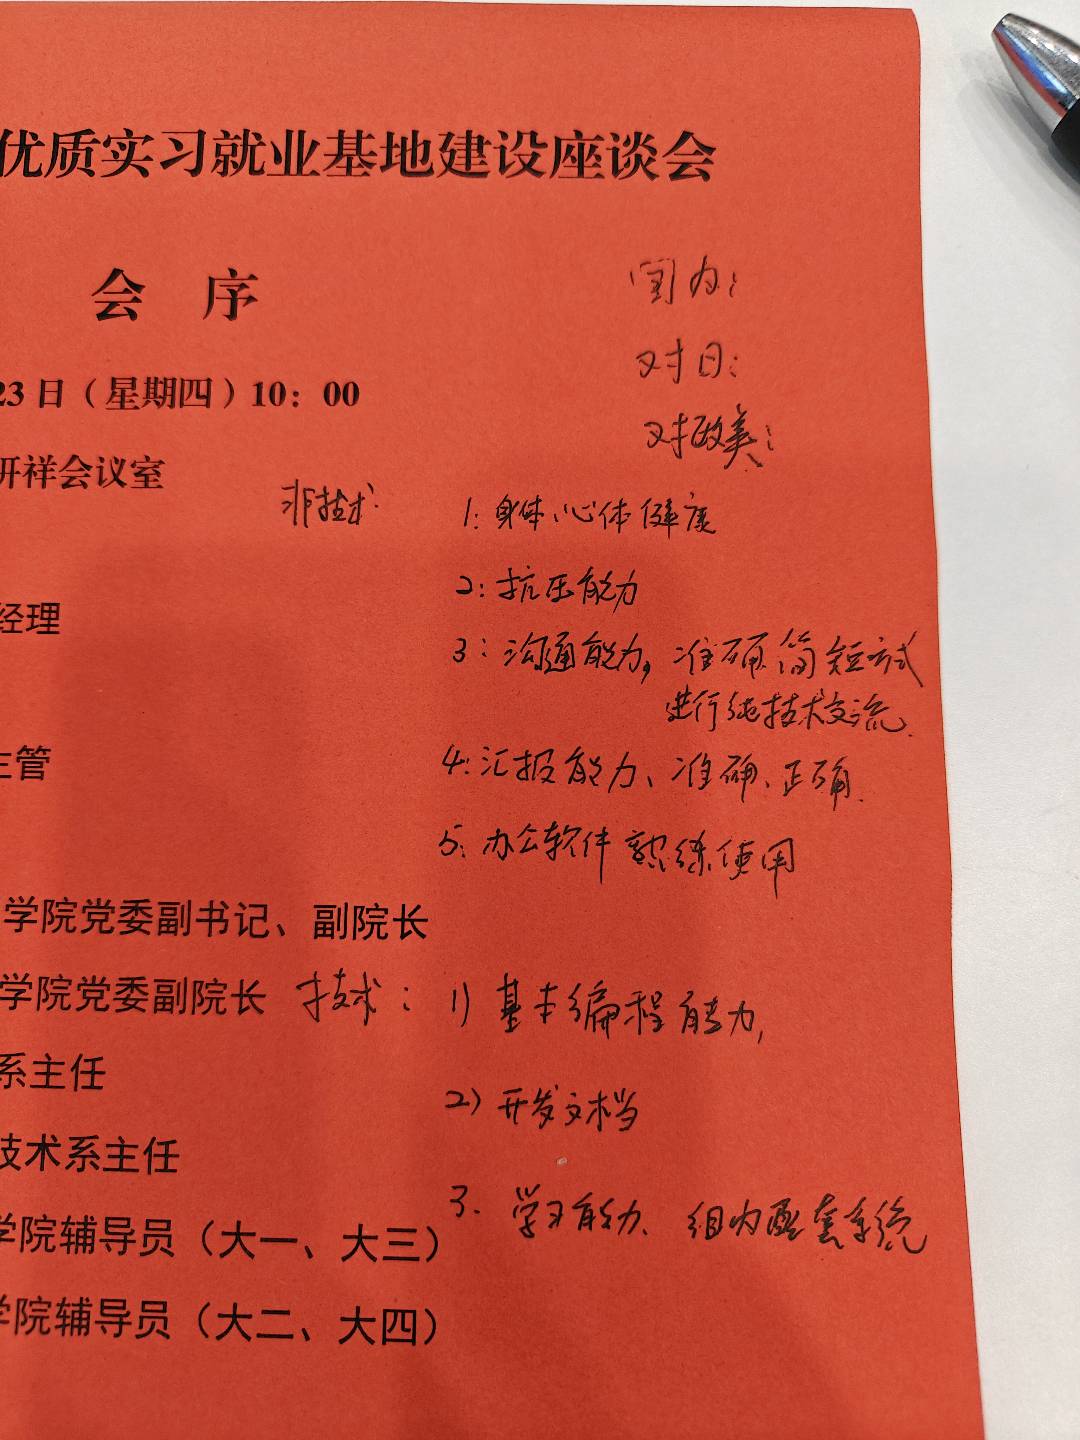 优质实习就业基地建设座谈会
会 序
国内：
对日：
23日（星期四）10：00
对欧美：
研祥会议室
非技术：
1：身体心体健康
2：抗压能力
经理
3：沟通能力，准确简短方式
进行纯技术交流.
主管
4：汇报能力、准确、正确.
5：办公软件 熟练使用
学院党委副书记、副院长
学院党委副院长
技术： 1）基本编程能力，
系主任
2）开发文档
技术系主任
3. 学习能力、组内配套系统
学院辅导员（大一、大三）
学院辅导员（大二、大四）